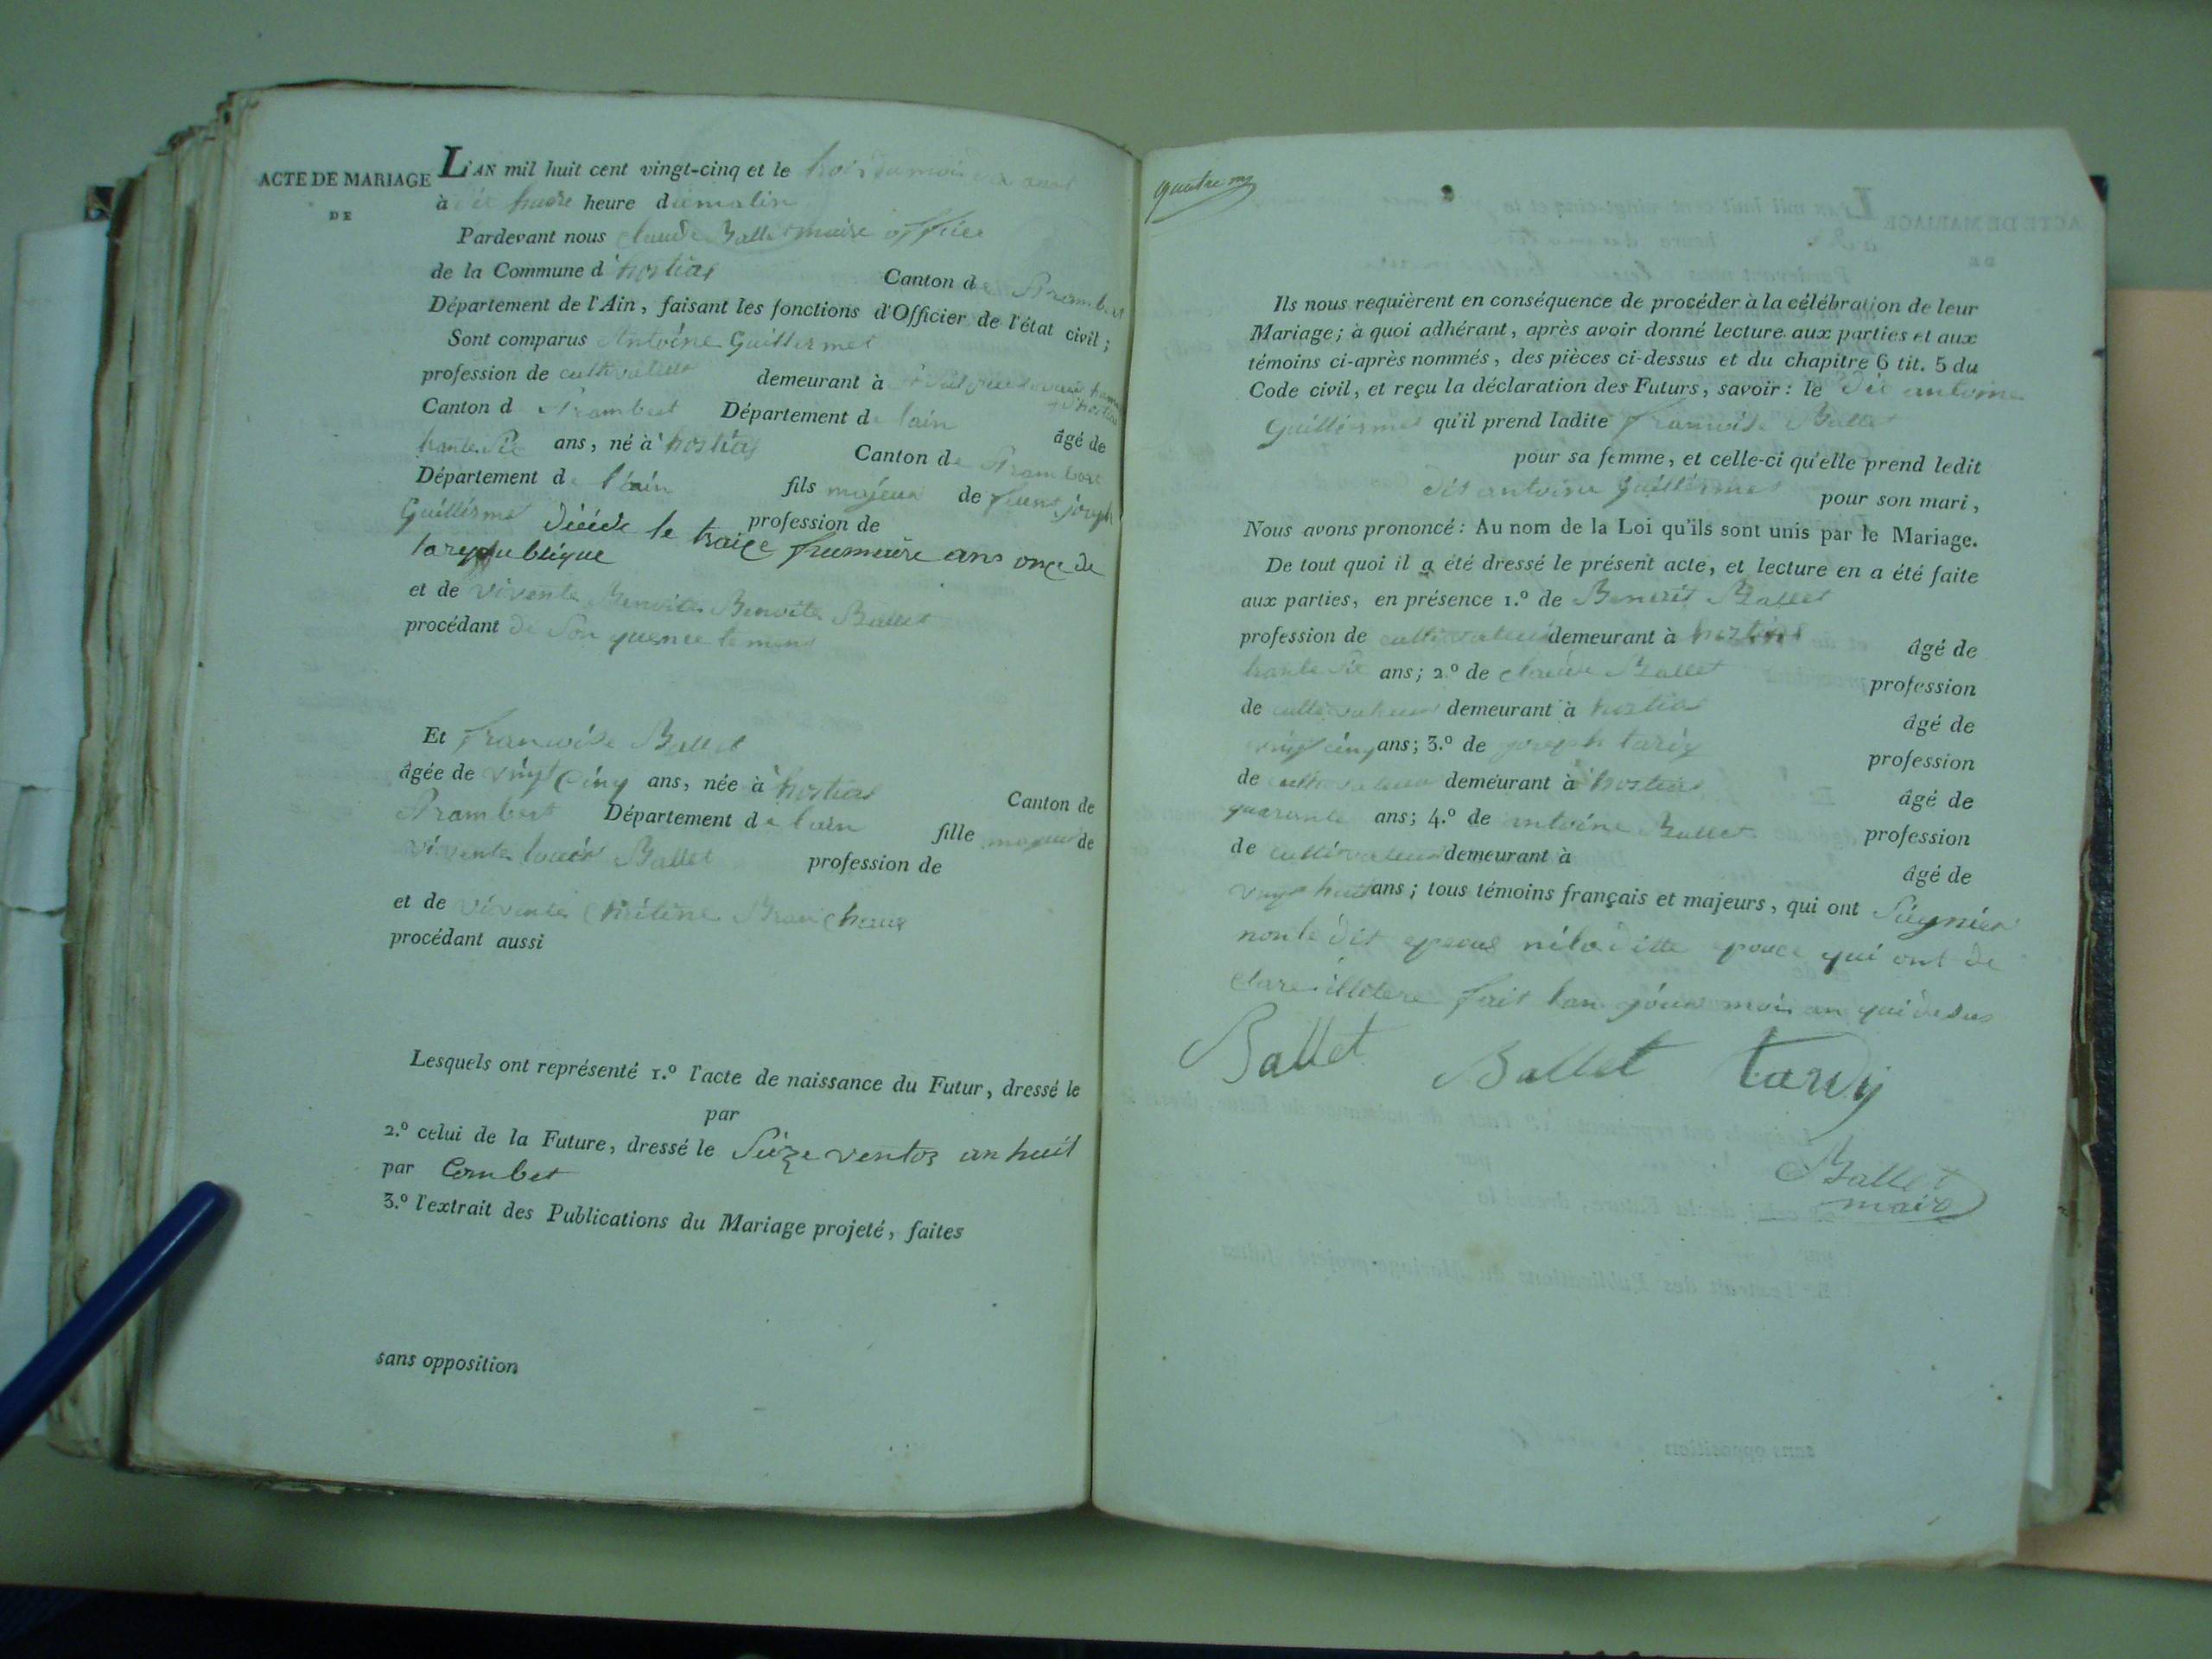 ACTE DE MARIAGE
DE
L'AN mil huit cent vingt-cinq et le trois du mois
à heure du matin
Pardevant nous claude Ballet maire officier
de la Commune d'hostias Canton de Rambert
Département de l'Ain, faisant les fonctions d'Officier de l'état civil;
Sont comparus Antoine Guillermet
profession de cultivateur demeurant à
Canton de Rambert Département de lain âgé de
trante ans, né à hostias Canton de Rambert
Département de l'ain fils majeur de joseph
Guillermet profession de
déédé le traize frumaire ans onze de
la republique
et de vivente Benoite Ballet
procédant de Son
Et francoise Ballet
âgée de vingt cinq ans, née à hostias Canton de
Rambert Département de lain fille de
vivente louis Ballet profession de
et de vivente
procédant aussi
Lesquels ont représenté 1.º l'acte de naissance du Futur, dressé le
par
2.º celui de la Future, dressé le Seize ventoz an huit
par Combet
3.º l'extrait des Publications du Mariage projeté, faites
sans opposition
quatre
Ils nous requièrent en conséquence de procéder à la célébration de leur
Mariage; à quoi adhérant, après avoir donné lecture aux parties et aux
témoins ci-après nommés, des pièces ci-dessus et du chapitre 6 tit. 5 du
Code civil, et reçu la déclaration des Futurs, savoir: le dit antoine
Guillermet qu'il prend ladite francoise Ballet
pour sa femme, et celle-ci qu'elle prend ledit
dit antoine guillermet pour son mari,
Nous avons prononcé: Au nom de la Loi qu'ils sont unis par le Mariage.
De tout quoi il a été dressé le présent acte, et lecture en a été faite
aux parties, en présence 1.º de Benoit Ballet
profession de cultivateur demeurant à hostias âgé de
trante ans; 2.º de claude Ballet profession
de cultivateur demeurant à hostias âgé de
vingt cinq ans; 3.º de joseph tardy profession
de cultivateur demeurant à hostias âgé de
quarante ans; 4.º de antoine Ballet profession
de cultivateur demeurant à âgé de
vingt huit ans; tous témoins français et majeurs, qui ont Siegnier
non le dit epoux ni la ditte epouce qui ont de
clare illitere fait lan jour mois an qui desus
Ballet Ballet tardy
Ballet
maire